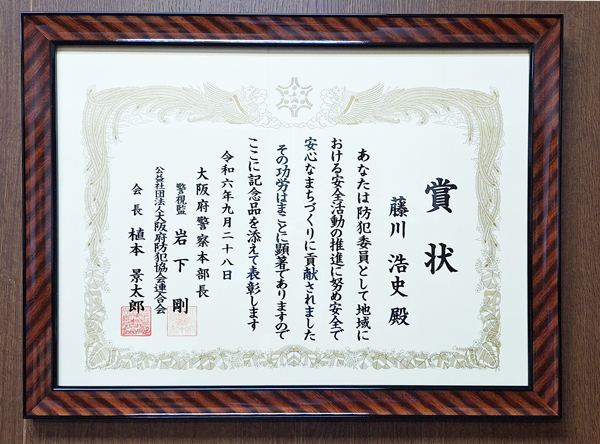 賞状
藤川 浩史 殿
あなたは防犯委員として地域に
おける安全活動の推進に努め安全で
安心なまちづくりに貢献されました
その功労はまことに顕著でありますので
ここに記念品を添えて表彰します
令和六年九月二十八日
大阪府警察本部長
警視監 岩下 剛
公益社団法人大阪府防犯協会連合会
会長 植本 景太郎